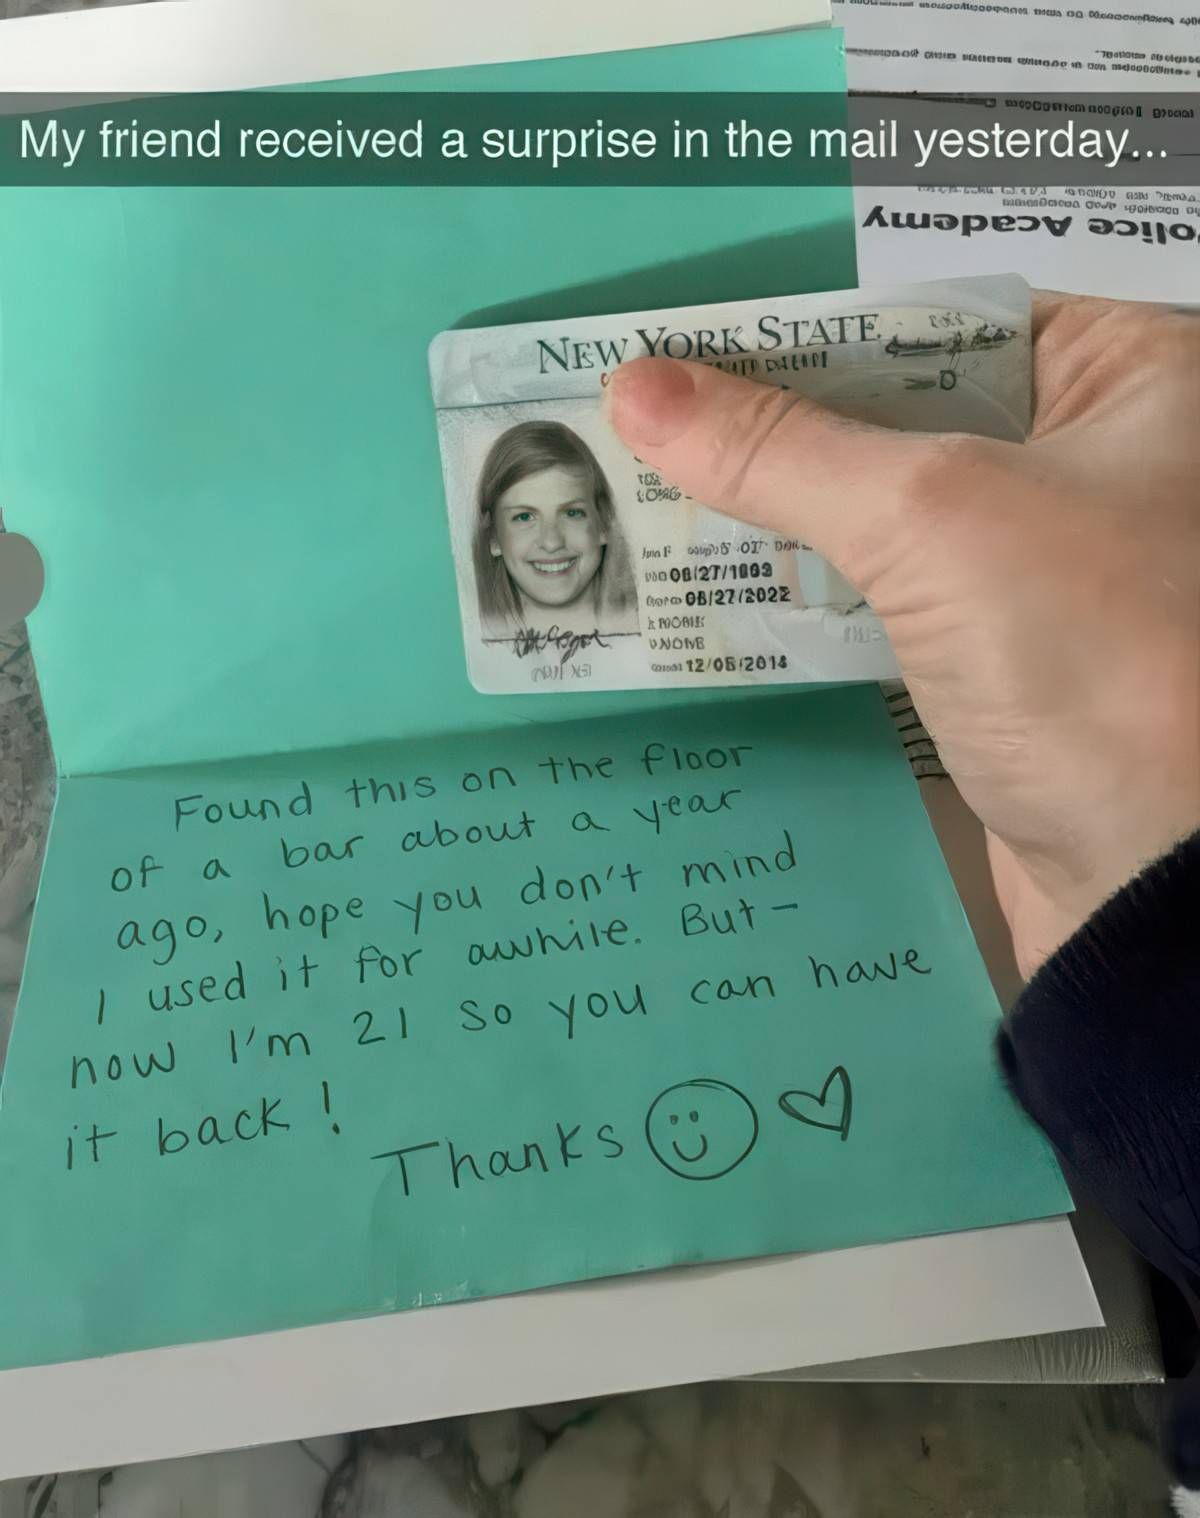 My friend received a surprise in the mail yesterday...
olice Academy
NEW YORK STATE
08/27/2022
12/05/2014
Found this on the floor
of a bar about a year
ago, hope you don't mind
I used it for awhile. But –
now I'm 21 so you can have
it back!
Thanks